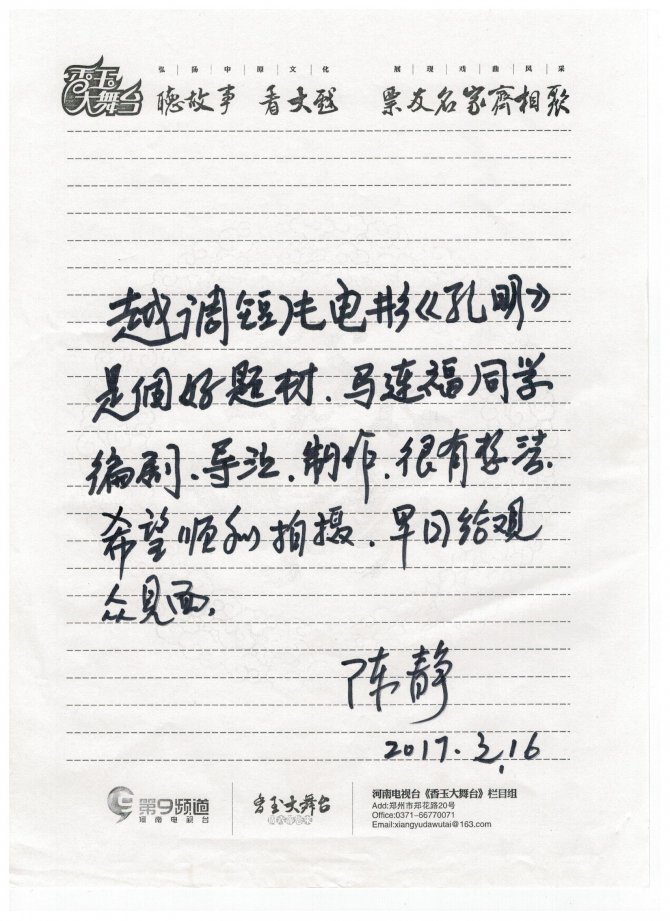 弘扬中原文化 展现戏曲风采
香玉大舞台
聴故事 看大戏 票友名家齊相聚
越调短片电影《孔明》
是個好题材、马连福同学
编剧、导演、制作、很有想法、
希望顺利拍摄、早日给观
众见面。
陈静
2017.3.16
第9频道
河南电视台
香玉大舞台
河南电视台《香玉大舞台》栏目组
Add:郑州市郑花路20号
Office:0371-66770071
Email:xiangyudawutai@163.com